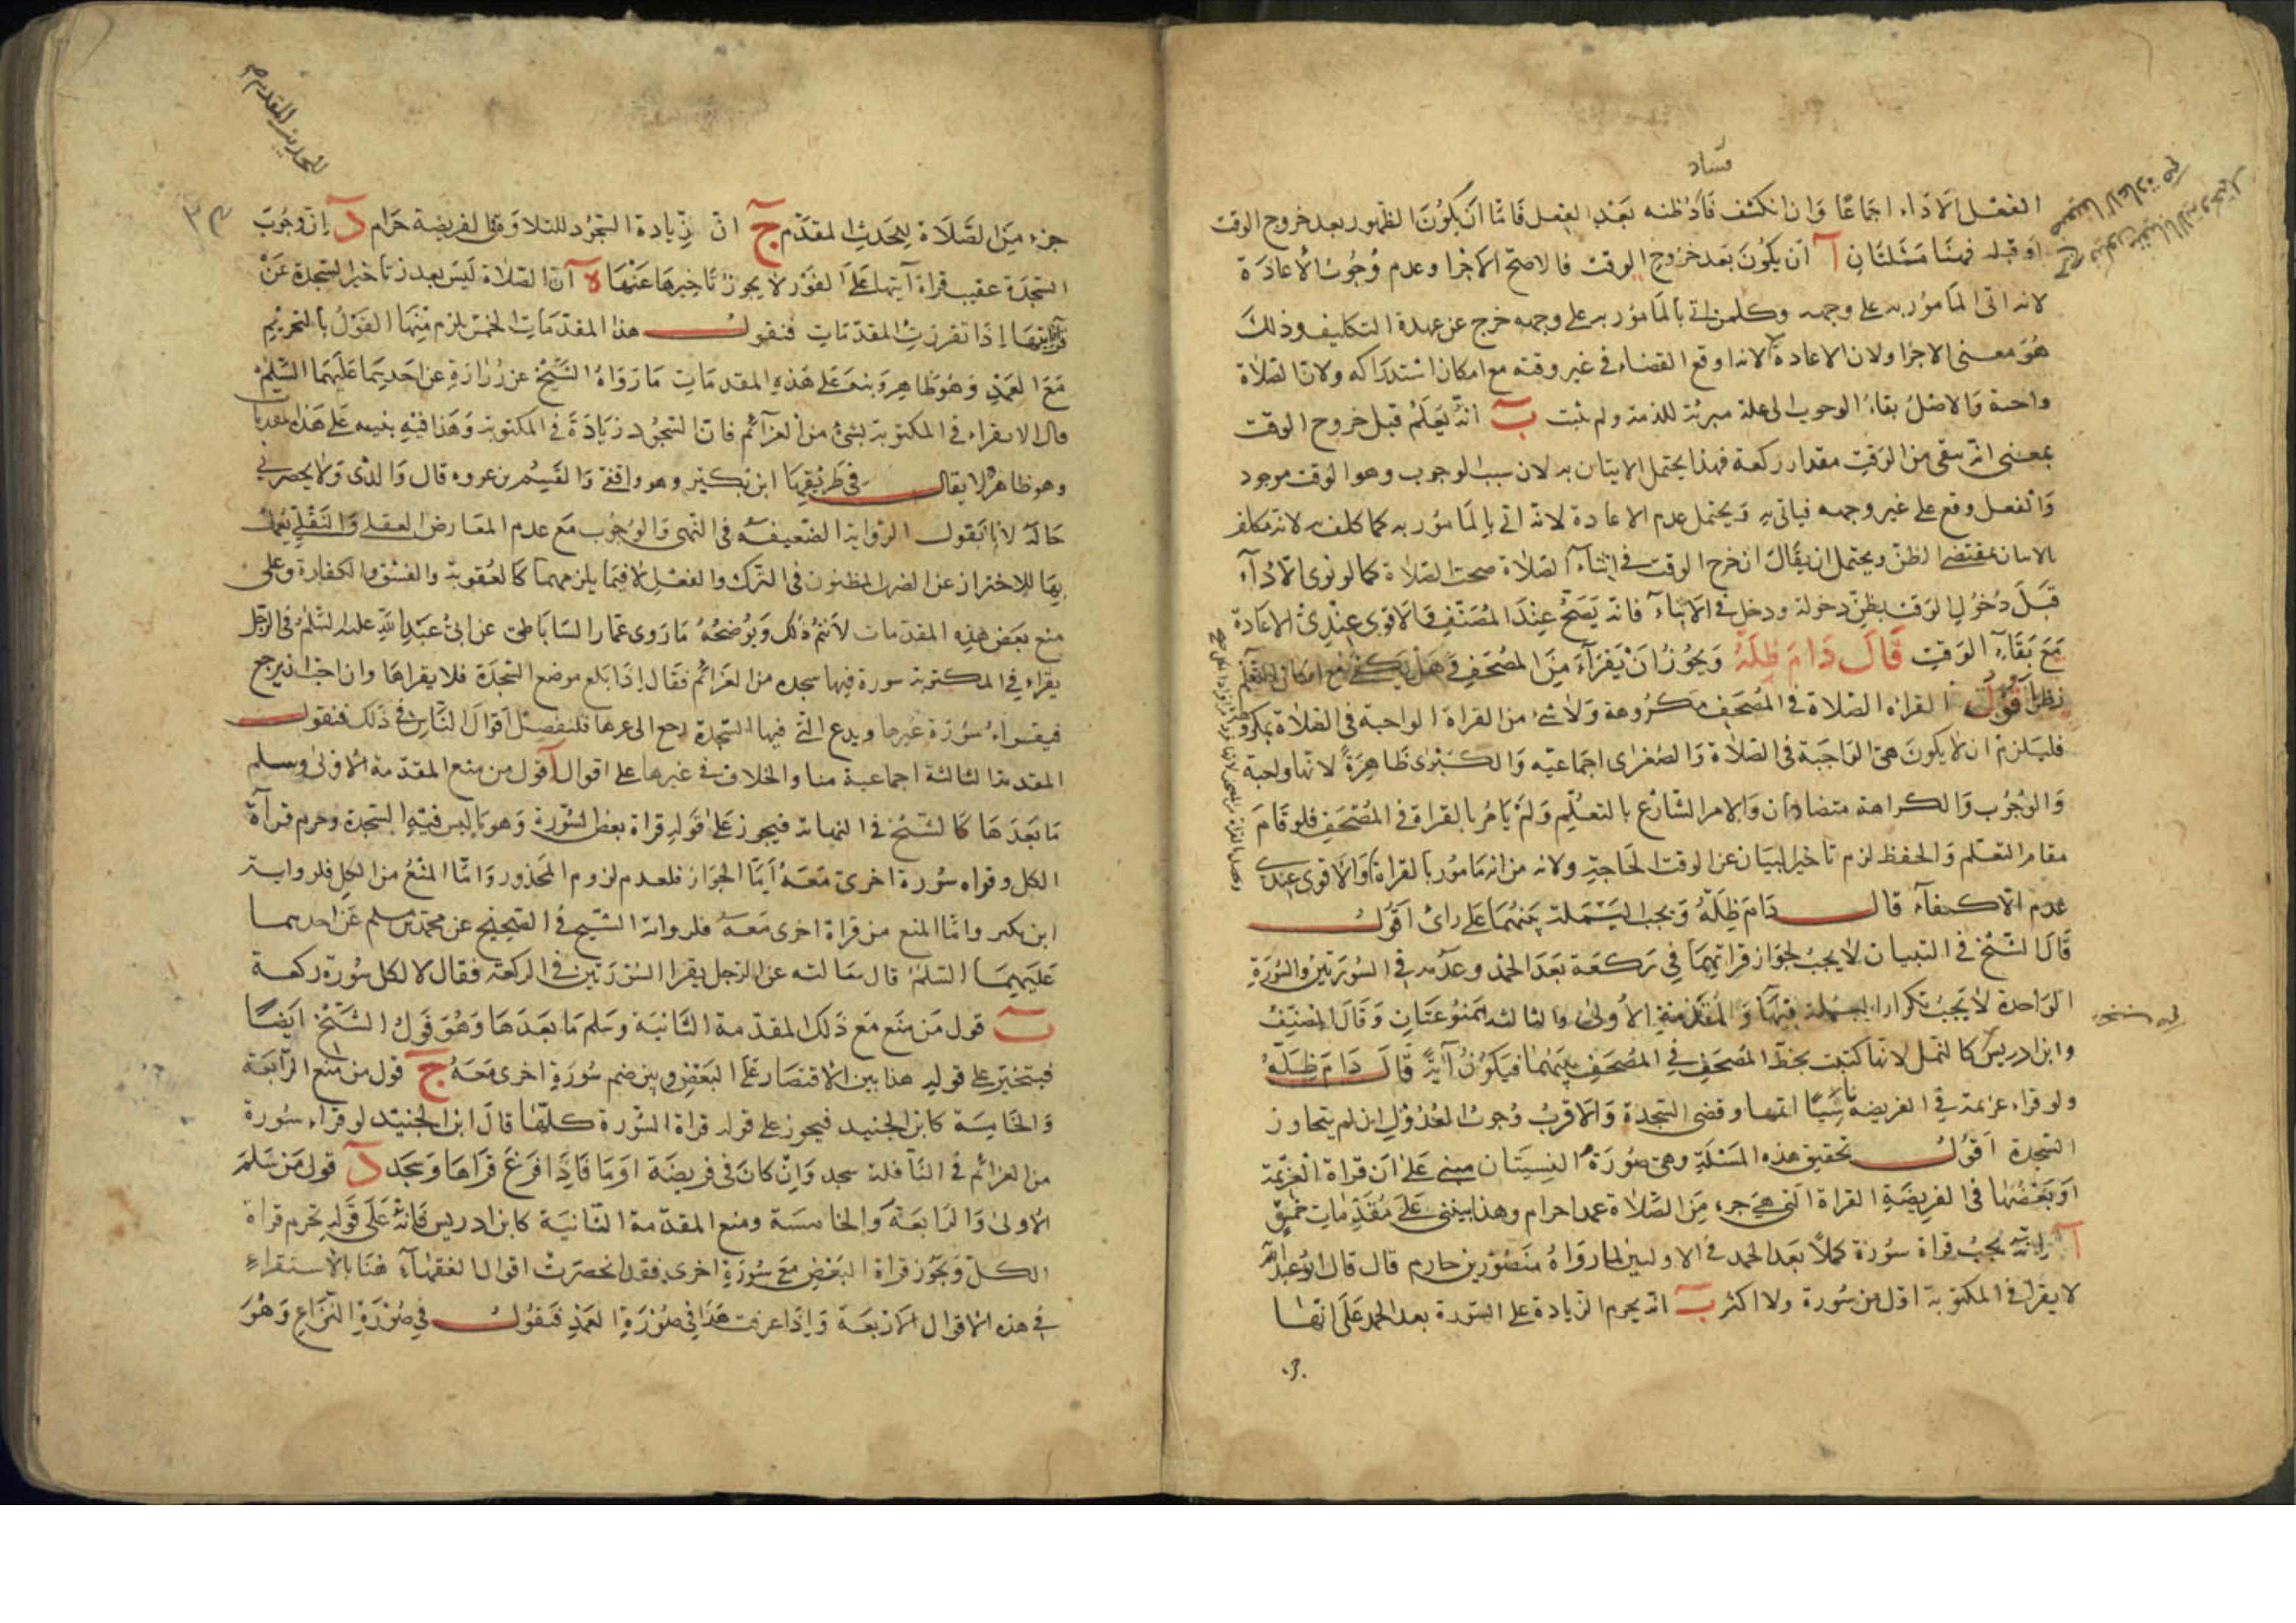 فساد
الفعل الاداء اجماعا وان انكشف فساد ظنه بعد الفعل فاما ان يكون الظهور بعد خروج الوقت
او قبله فهنا مسئلتان آ ان يكون بعد خروج الوقت فالاصح الاجزا وعدم وجوب الاعادة
لانه اتى المامور به على وجهه وكل من اتى بالمامور به على وجهه خرج عن عهدة التكليف وذلك
هو معنى الاجزا ولان الاعادة لانه اوقع القضاء في غير وقته مع امكان استدراكه ولان الصلاة
واحدة والاصل بقاء الوجوب الى علة مبرئة للذمة ولم يثبت ب انه يعلم قبل خروج الوقت
بمعنى انه بقى من الوقت مقدار ركعة فهذا يحتمل الاتيان به لان سبب الوجوب وهو الوقت موجود
والفعل وقع على غير وجهه فياتي به ويحتمل عدم الاعادة لانه اتى بالمامور به كما كلف به لانه مكلف
بمقتضى الظن ويحتمل ان يقال ان خرج الوقت في اثناء الصلاة صحت الصلاة كما لو نوى الاداء
قبل دخول الوقت بظن دخوله ودخل في الاثناء فانه يصح عند المصنف والاقوى عندي الاعادة
مع بقاء الوقت قال دام ظله ويجوز ان يقراء من المصحف وهل يكفي مع امكان التعلم
نظر اقول القراة في الصلاة في المصحف مكروهة ولا شئ من القراة الواجبة في الصلاة بمكروه
فيلزم ان لا يكون هي الواجبة في الصلاة والصغرى اجماعيه والكبرى ظاهرة لانها واجبة
والوجوب والكراهة متضادان ولامر الشارع بالتعليم ولم يامر بالقراة في المصحف فلو قام
مقام التعلم والحفظ لزم تاخير البيان عن الوقت الحاجة ولانه من انه مامور بالقراة والاقوى عندي
عدم الاكتفاء قال دام ظله ويجب البسملة بينهما على راى اقول
قال الشيخ في التبيان لا يجب لجواز قراتهما في ركعة بعد الحمد وعدمه في السورتين والسورة
الواحدة لا يجب تكرار البسملة فيها والمقدمة الاولى والثالثة ممنوعتان وقال المصنف
وابن ادريس كالنمل لانها كتبت بخط المصحف في المصحف بينهما فيكون آية قال دام ظله
ولو قراء عزيمة في الفريضة ناسيا اتمها وقضى السجدة والاقرب وجوب العدول ان لم يتجاوز
السجدة اقول تحقيق هذه المسئلة وهي صورة النسيان مبنى على ان قراة العزيمة
او بعضها في الفريضة القراة التي هي جزء من الصلاة عمدا حرام وهذا يبتنى على مقدمات خمس
آ انه يجب قراة سورة كملا بعد الحمد في الاوليين لما رواه منصور بن حازم قال قال ابو عبد الله
لا يقرا في المكتوبة اقل من سورة ولا اكثر ب انه يحرم الزيادة على السورة بعد الحمد على انها
للحديث المقدم
٣٤
جزء من الصلاة للحديث المقدم ج ان زيادة السجود للتلاوة في الفريضة حرام د ان وجوب
السجدة عقيب قراة آيتها على الفور لا يجوز تاخيرها عنها ه ان الصلاة ليس بعذر في تاخير السجدة عن
قرائتها اذا تقررت المقدمات فنقول هذا المقدمات الخمس يلزم منها القول بالتحريم
مع العمد وهو ظاهر وينبه على هذه المقدمات ما رواه الشيخ عن زرارة عن احدهما عليهما السلم
قال لا يقراء في المكتوبة بشئ من العزائم فان السجود زيادة في المكتوبة وهذا فيه تنبيه على هذه المقدمات
وهو ظاهر لا يقال في طريقها ابن بكير وهو واقفي والقسم بن عروه قال والدى ولا يحضرني
حاله لانا نقول الرواية الضعيفة في النهى والوجوب مع عدم المعارض العقلى والنقلى يعمل
بها للاحتراز عن الضرر المظنون في الترك والفعل لا فيما يلزمهما كالعقوبة والفسق والكفارة وعلى
منع بعض هذه المقدمات لا يتم ذلك ويوضحه ما روى عمار الساباطى عن ابي عبد الله عليه السلم في الرجل
يقراء في المكتوبة سورة فيها سجده من العزائم فقال اذا بلغ موضع السجدة فلا يقراها وان احب ان يرجع
فيقراء سورة غيرها ويدع التي فيها السجدة رجع الى غيرها فلنفصل اقوال الناس في ذلك فنقول
المقدمة الثالثة اجماعية منا والخلاف في غيرها على اقوال آ قول من منع المقدمة الاولى وسلم
ما بعدها كالشيخ في النهاية فيجوز على قوله قراة بعض السورة وهو ما ليس فيه السجدة وحرم قراة
الكل وقراه سورة اخرى معه اما الجواز فلعدم لزوم المحذور واما المنع من الكل فلرواية
ابن بكير واما المنع من قراة اخرى معه فلرواية الشيخ في الصحيح عن محمد بن مسلم عن احدهما
عليهما السلم قال سالته عن الرجل يقرا السورتين في الركعة فقال لا لكل سورة ركعة
ب قول من منع مع ذلك المقدمة الثانية وسلم ما بعدها وهو قول الشيخ ايضا
فيتخير على قوله هذا بين الاقتصار على البعض وبين ضم سورة اخرى معه ج قول من منع الرابعة
والخامسة كابن الجنيد فيجوز على قوله قراة السورة كلها قال ابن الجنيد لو قراء سورة
من العزائم في النافلة سجد وان كان في فريضة اوما فاذا فرغ قراها وسجد د قول من سلم
الاولى والرابعة والخامسة ومنع المقدمة الثانية كابن ادريس فانه على قوله تحرم قراة
الكل ويجوز قراة البعض مع سورة اخرى فقد انحصرت اقوال الفقهاء هنا بالاستقراء
في هذه الاقوال الاربعة واذا عرفت هذا في صورة العمد فنقول في صورة النزاع وهو